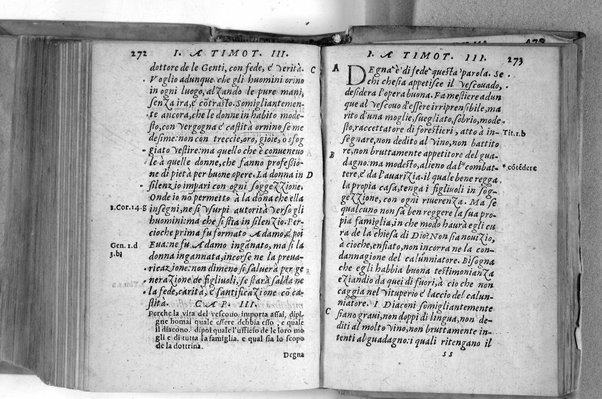 272 I. A TIMOT. III.
dottore de le Genti, con fede, e verità.
Voglio adunque che gli huomini orino
in ogni luogo, alzando le pure mani,
senza ira, e cōtrasto. Somigliantemen-
te ancora, che le donne in habito mode-
sto, con vergogna e castità ornino se me
desime: non con treccie, oro, gioie, o sfog
giato vestire: ma quello che è conueneuo
le à quelle donne, che fanno professio-
ne di pietà per buone opere. La donna in
silenzio impari con ogni soggezzione.
Onde io no permetto à la donna che ella
insegni, ne si vsurpi autorità verso gli
huomini: ma che si stia in silenzio. Per-
cioche prima fu formato Adamo, e poi
Eua: ne fu Adamo ingannato, ma si la
donna ingannata, incorse ne la preua-
ricazione: non dimeno si saluerà per ge
nerazione de figliuoli, se starà salda ne
la fede, carità, e santificazione cō ca-
stità.
C A P. III.
Perche la vita del vescouo importa assai, dipi-
gne homai quale essere debbia esso, e quale
il diacono, dipoi quale l'uffício de le loro mo
gli e di tutta la famiglia, e qual sia lo scopo
de la dottrina.
Degna
C
D
1.Cor.14.g
Gen. 1.d
3.b
I. A TIMOT. III. 273
A
DEgna è di fede questa parola. Se
chi che sia appetisce il vescouado,
desidera l'opera buona. Fa mestier adun
que al vescouo d'essere irriprensibile, ma
rito d'una moglie, suegliato, sobrio, mode-
sto, raccettatore di forestieri, atto à in-
segnare, non dedito al vino, non battito
re, non bruttamente appetitore del gua-
dagno: ma modesto, alieno dal combat-
tere, e da l'auarizia. il quale bene regga
la propia casa, tenga i figliuoli in sog-
gezzione, con ogni riuerenza. Ma se
qualcuno non sà ben reggere la sua pro
pia famiglia, in che modo haurà egli cu
ra de la chiesa di Dio? Non sia nouizio,
à cioche, enfiato, non incorra ne la con-
dannagione del calunniatore. Bisogna
che egli habbia buona testimonianza
eziandio da quei di fuori, à cio che non
caggia nel vituperio e laccio del calun-
niatore. I Diaconi somigliantemente
siano graui, non doppi di lingua, non de-
diti al molto vino, non bruttamente in-
tenti al guadagno: i quali ritengano il
ss
B
C
Tit.1.b
*cōtēdere